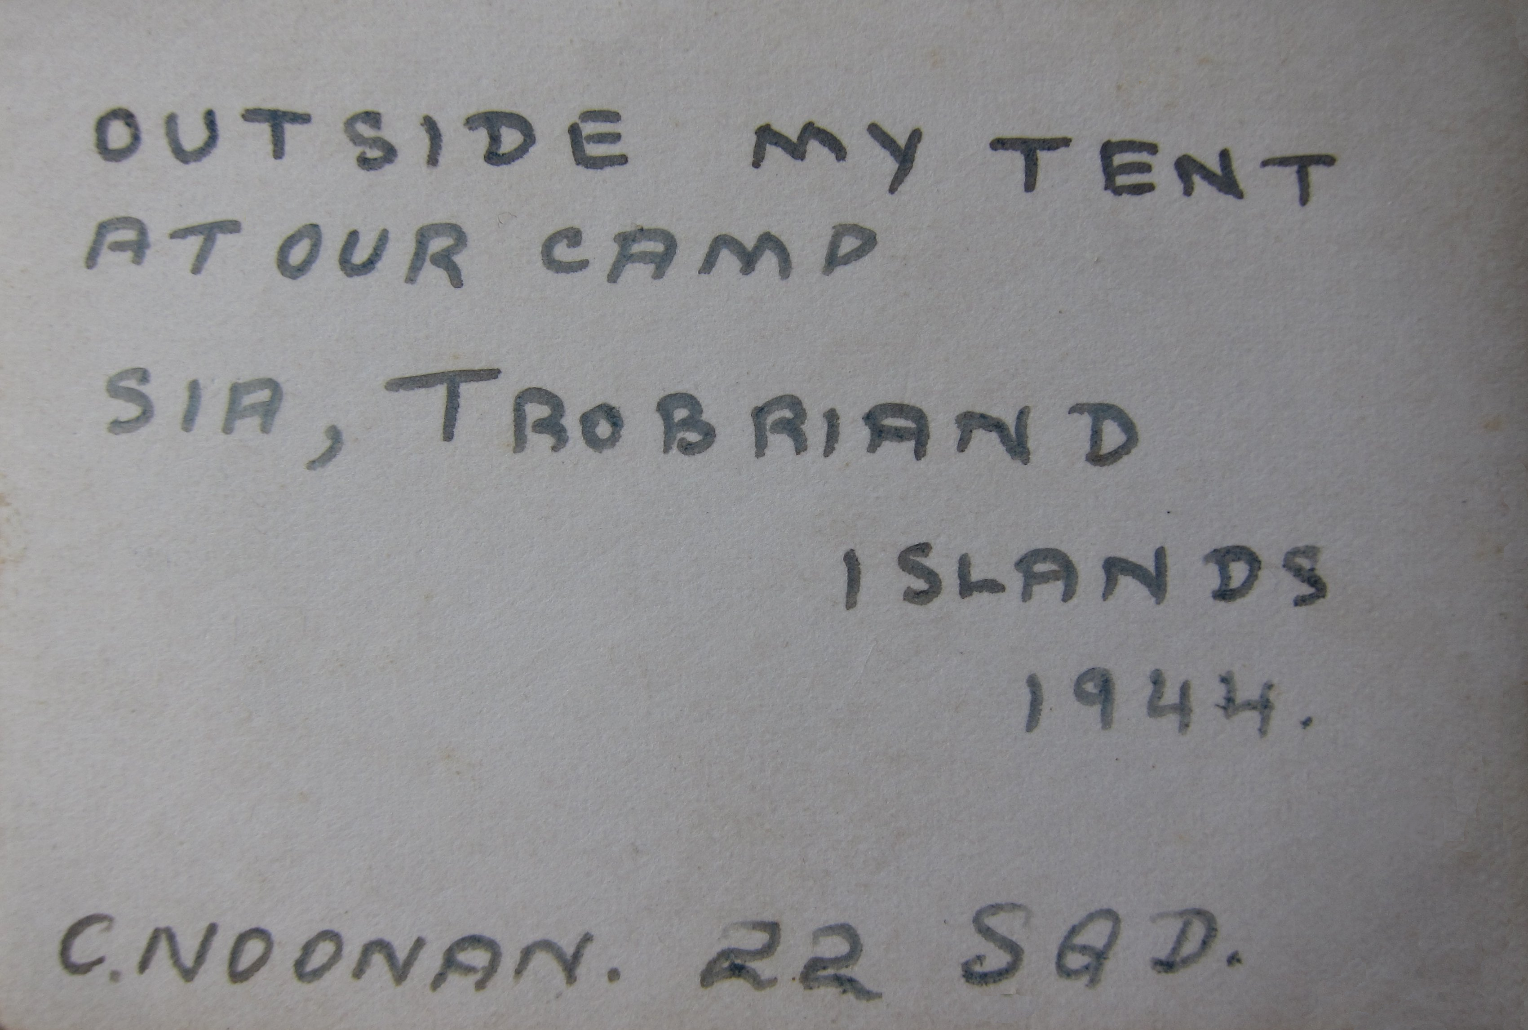 OUTSIDE MY TENT
AT OUR CAMP
SIA, TROBRIAND
ISLANDS
1944.
C. NOONAN. 22 SQD.